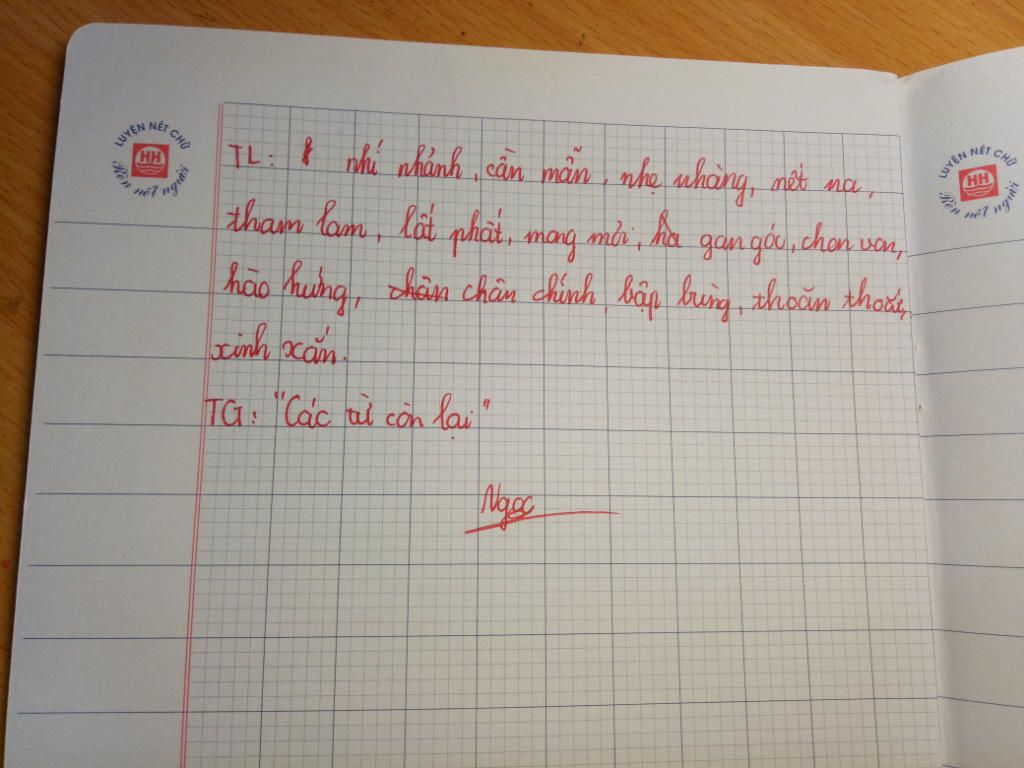 LUYỆN NÉT CHỮ
HH
Rèn nết người
TL: nhí nhảnh, cần mẫn, nhẹ nhàng, nết na,
tham lam, lất phất, mong mỏi, gan góc, chen von,
hào hứng, chân chân chính, bập bùng, thoăn thoắt,
xinh xắn.
TG: "Các từ còn lại"
Ngọc
LUYỆN NÉT CHỮ
HH
Rèn nết người